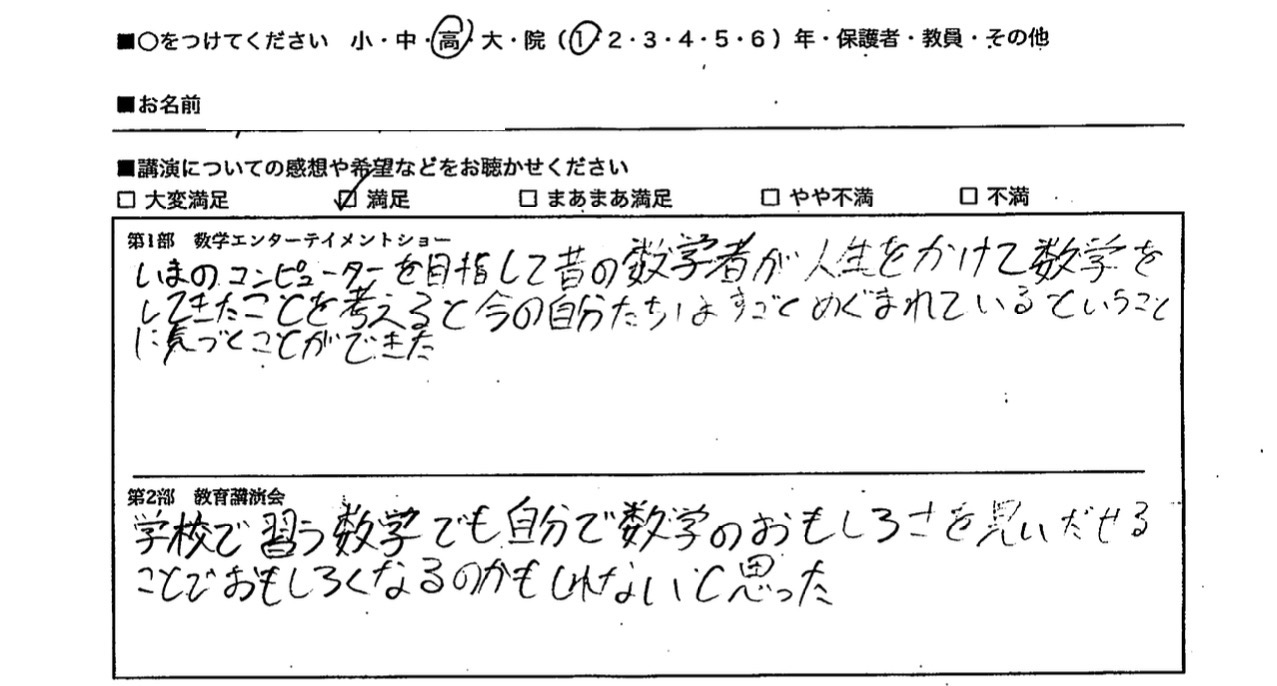 ■○をつけてください 小・中・高・大・院（1・2・3・4・5・6）年・保護者・教員・その他
■お名前
■講演についての感想や希望などをお聴かせください
□ 大変満足 ☑ 満足 □ まあまあ満足 □ やや不満 □ 不満
第1部 数学エンターテイメントショー
いまのコンピューターを目指して昔の数学者が人生をかけて数学を
してきたことを考えると今の自分たちはすごくめぐまれているということ
に気づくことができた
第2部 教育講演会
学校で習う数学でも自分で数学のおもしろさを見いだせる
ことでおもしろくなるのかもしれないと思った